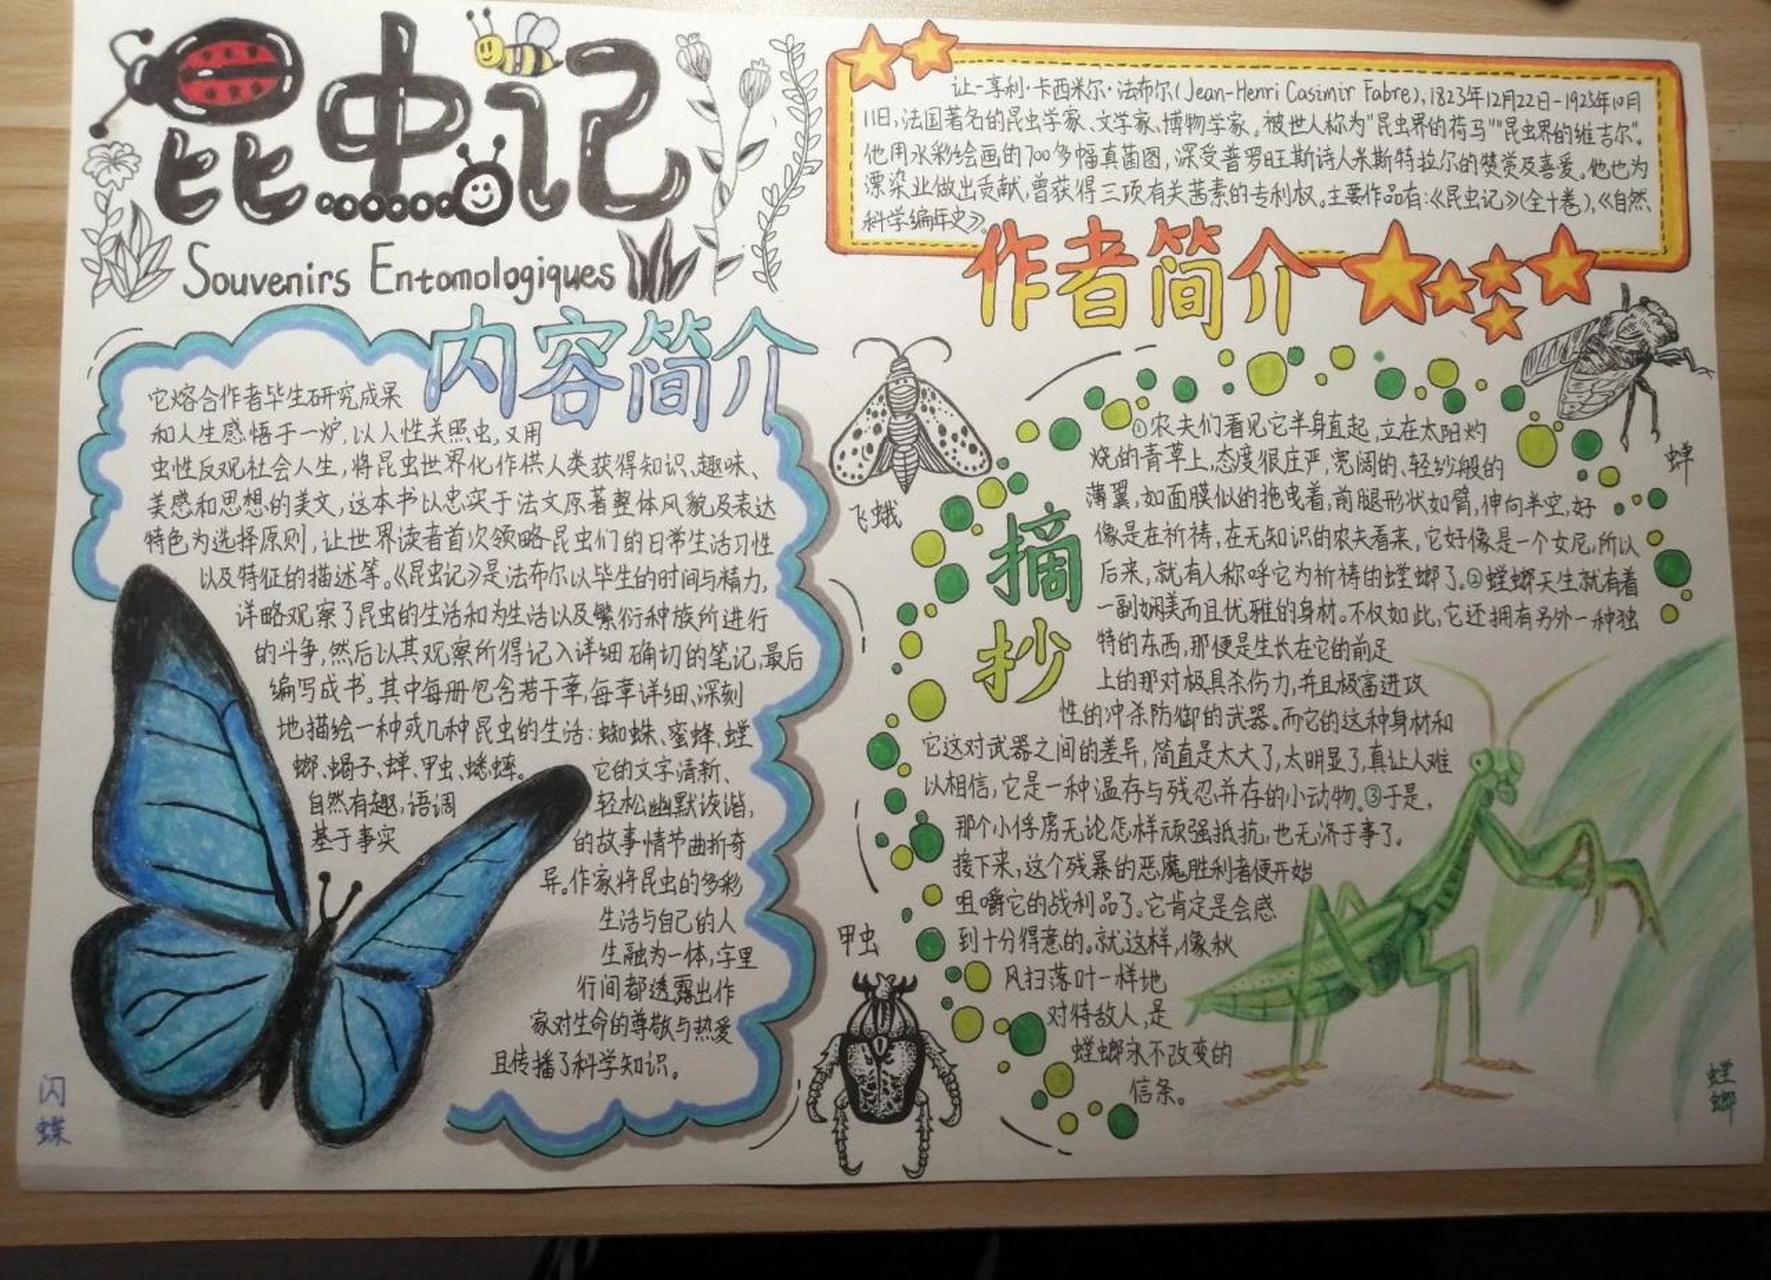 昆虫记
Souvenirs Entomologiques
让-享利·卡西米尔·法布尔(Jean-Henri Casimir Fabre),1823年12月22日-1925年10月
11日,法国著名的昆虫学家、文学家、博物学家。被世人称为"昆虫界的荷马""昆虫界的维吉尔"。
他用水彩绘画的700多幅真菌图,深受普罗旺斯诗人米斯特拉尔的赞赏及喜爱。他也为
漂染业做出贡献,曾获得三项有关茜素的专利权。主要作品有:《昆虫记》(全十卷),《自然
科学编年史》。
作者简介
内容简介
它熔合作者毕生研究成果
和人生感悟于一炉,以人性关照虫,又用
虫性反观社会人生,将昆虫世界化作供人类获得知识、趣味、
美感和思想的美文,这本书以忠实于法文原著整体风貌及表达
特色为选择原则,让世界读者首次领略昆虫们的日常生活习性
以及特征的描述等。《昆虫记》是法布尔以毕生的时间与精力,
详略观察了昆虫的生活和为生活以及繁衍种族所进行
的斗争,然后以其观察所得记入详细确切的笔记,最后
编写成书。其中每册包含若干章,每章详细、深刻
地描绘一种或几种昆虫的生活:蜘蛛、蜜蜂、螳
螂、蝎子、蝉、甲虫、蟋蟀。 它的文字清新、
自然有趣,语调 轻松幽默诙谐,
基于事实 的故事情节曲折奇
异。作家将昆虫的多彩
生活与自己的人
生融为一体,字里
行间都透露出作
家对生命的尊敬与热爱
且传播了科学知识。
闪蝶
飞蛾
甲虫
蝉
摘抄
①农夫们看见它半身直起,立在太阳灼
烧的青草上,态度很庄严,宽阔的、轻纱般的
薄翼,如面膜似的拖曳着,前腿形状如臂,伸向半空,好
像是在祈祷,在无知识的农夫看来,它好像是一个女尼,所以
后来,就有人称呼它为祈祷的螳螂了。②螳螂天生就有着
一副娴美而且优雅的身材。不仅如此,它还拥有另外一种独
特的东西,那便是生长在它的前足
上的那对极具杀伤力,并且极富进攻
性的冲杀防御的武器。而它的这种身材和
它这对武器之间的差异,简直是太大了,太明显了,真让人难
以相信,它是一种温存与残忍并存的小动物。③于是,
那个小俘虏无论怎样顽强抵抗,也无济于事了。
接下来,这个残暴的恶魔胜利者便开始
咀嚼它的战利品了。它肯定是会感
到十分得意的。就这样,像秋
风扫落叶一样地
对待敌人,是
螳螂永不改变的
信条。
螳螂